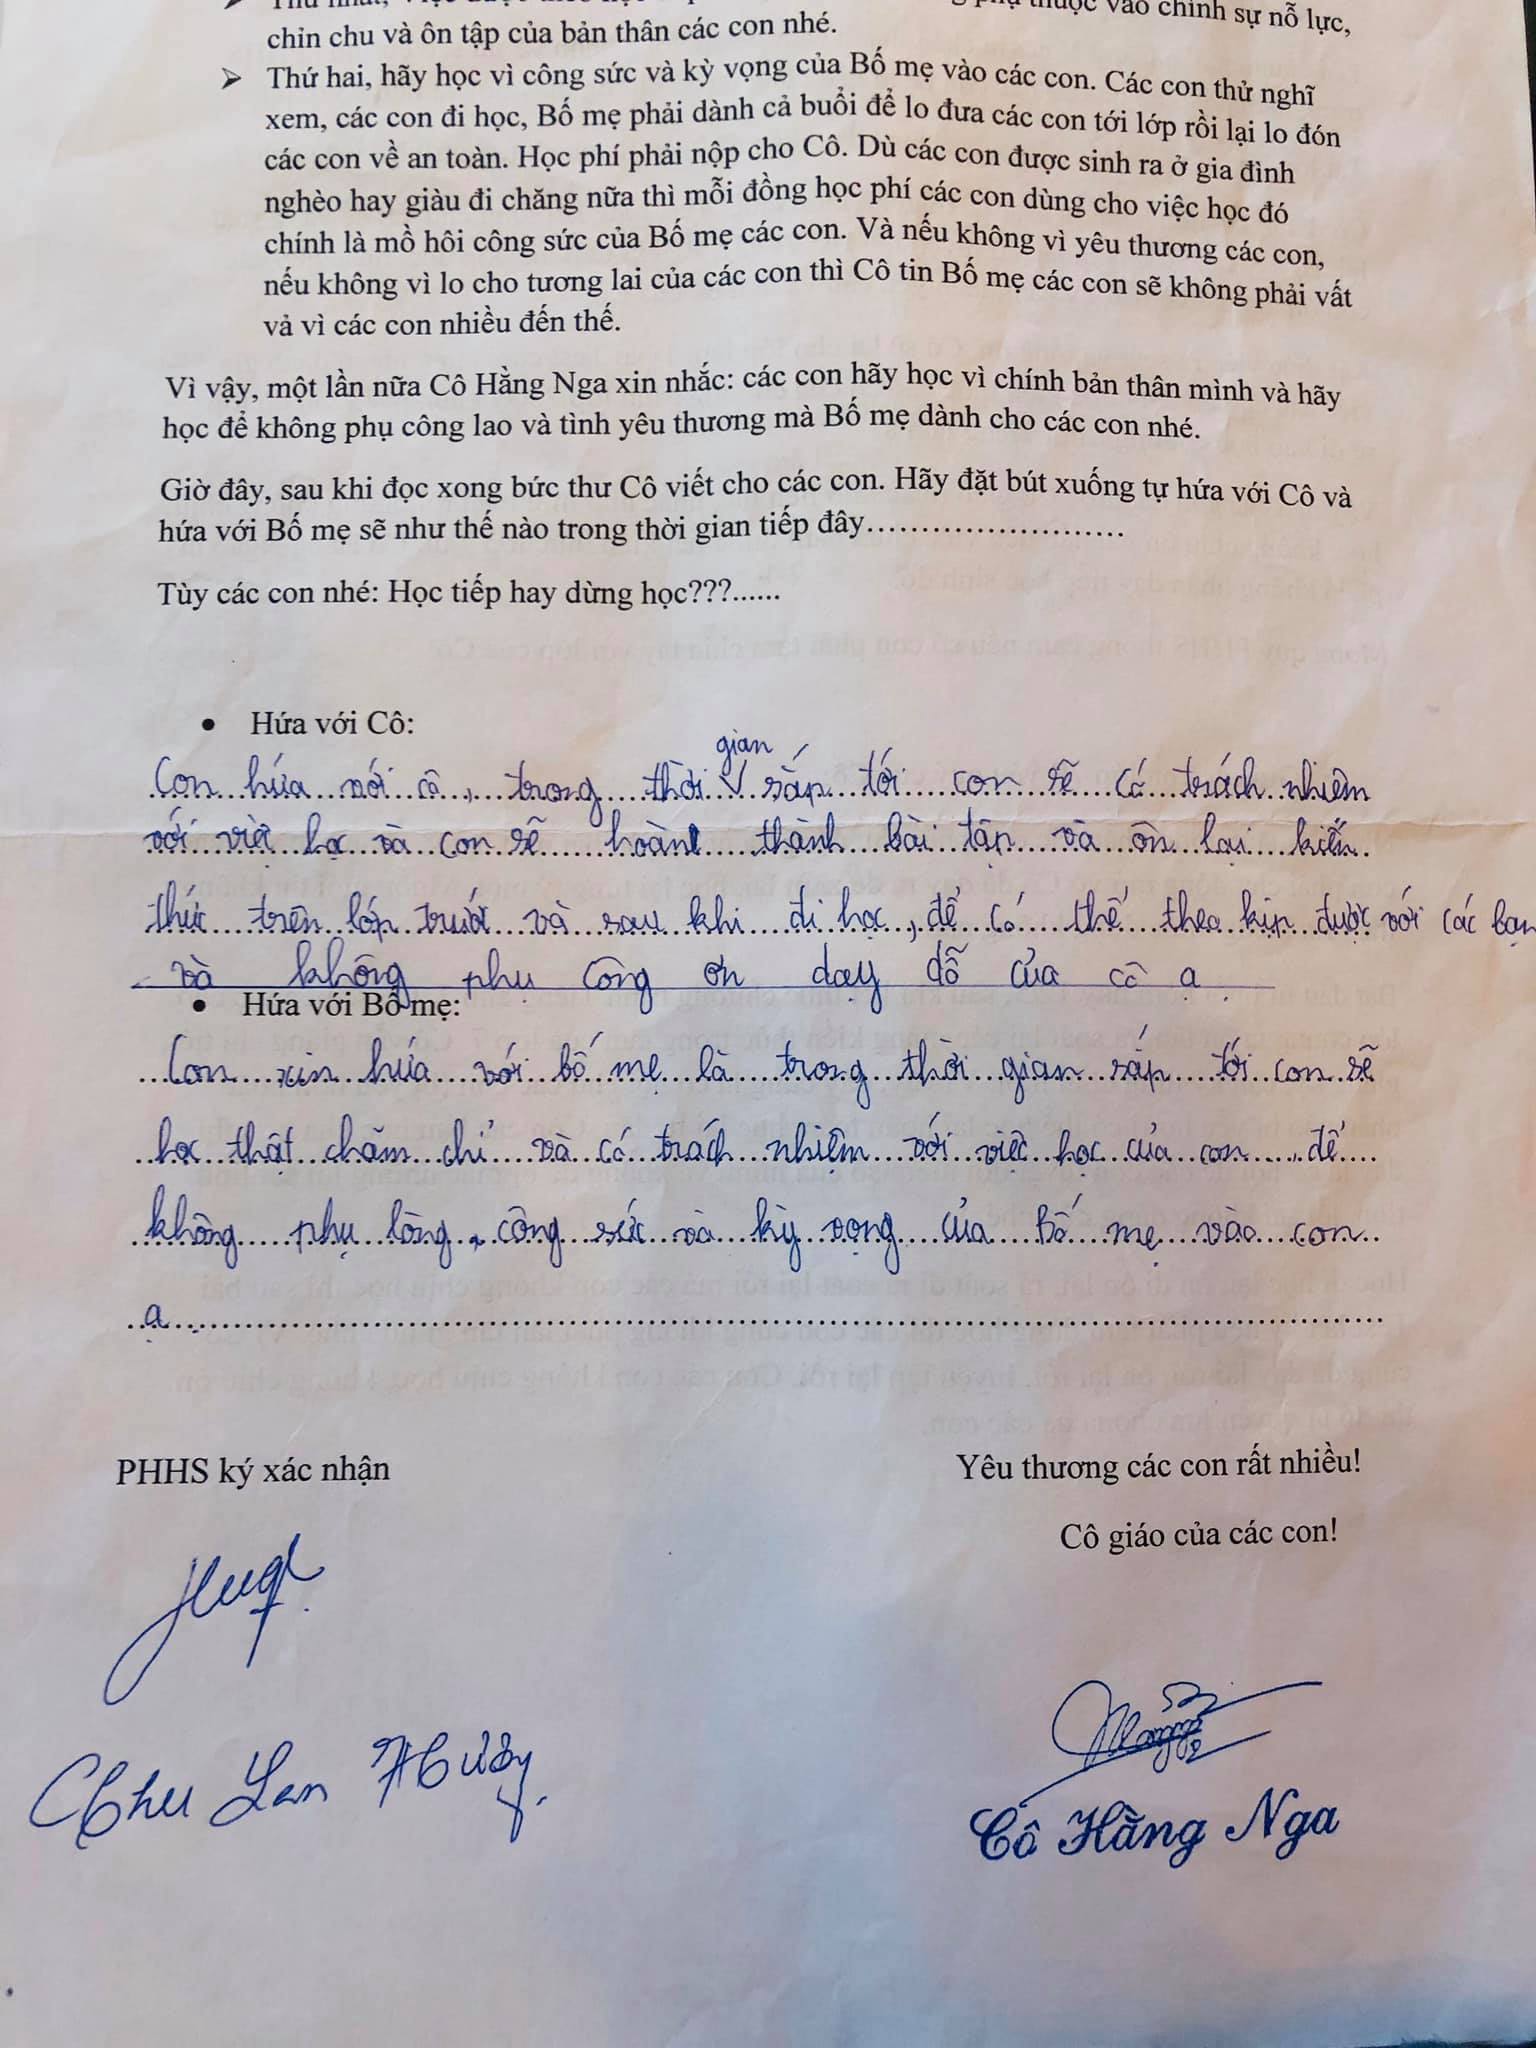 phụ thuộc vào chính sự nỗ lực,
chỉn chu và ôn tập của bản thân các con nhé.
➢ Thứ hai, hãy học vì công sức và kỳ vọng của Bố mẹ vào các con. Các con thử nghĩ
xem, các con đi học, Bố mẹ phải dành cả buổi để lo đưa các con tới lớp rồi lại lo đón
các con về an toàn. Học phí phải nộp cho Cô. Dù các con được sinh ra ở gia đình
nghèo hay giàu đi chăng nữa thì mỗi đồng học phí các con dùng cho việc học đó
chính là mồ hôi công sức của Bố mẹ các con. Và nếu không vì yêu thương các con,
nếu không vì lo cho tương lai của các con thì Cô tin Bố mẹ các con sẽ không phải vất
vả vì các con nhiều đến thế.
Vì vậy, một lần nữa Cô Hằng Nga xin nhắc: các con hãy học vì chính bản thân mình và hãy
học để không phụ công lao và tình yêu thương mà Bố mẹ dành cho các con nhé.
Giờ đây, sau khi đọc xong bức thư Cô viết cho các con. Hãy đặt bút xuống tự hứa với Cô và
hứa với Bố mẹ sẽ như thế nào trong thời gian tiếp đây........................
Tùy các con nhé: Học tiếp hay dừng học???......
• Hứa với Cô:
Con hứa với cô, trong thời gian sắp tới con sẽ có trách nhiệm
với việc học và con sẽ hoàn thành bài tập và ôn lại kiến
thức trên lớp trước và sau khi đi học, để có thế theo kịp được với các bạn
và không phụ công ơn dạy dỗ của cô ạ.
• Hứa với Bố mẹ:
Con xin hứa với bố mẹ là trong thời gian sắp tới con sẽ
học thật chăm chỉ và có trách nhiệm với việc học của con, để
không phụ lòng, công sức và kỳ vọng của Bố mẹ vào con
ạ.
PHHS ký xác nhận
Yêu thương các con rất nhiều!
Cô giáo của các con!
Chu Lan Hương.
Cô Hằng Nga